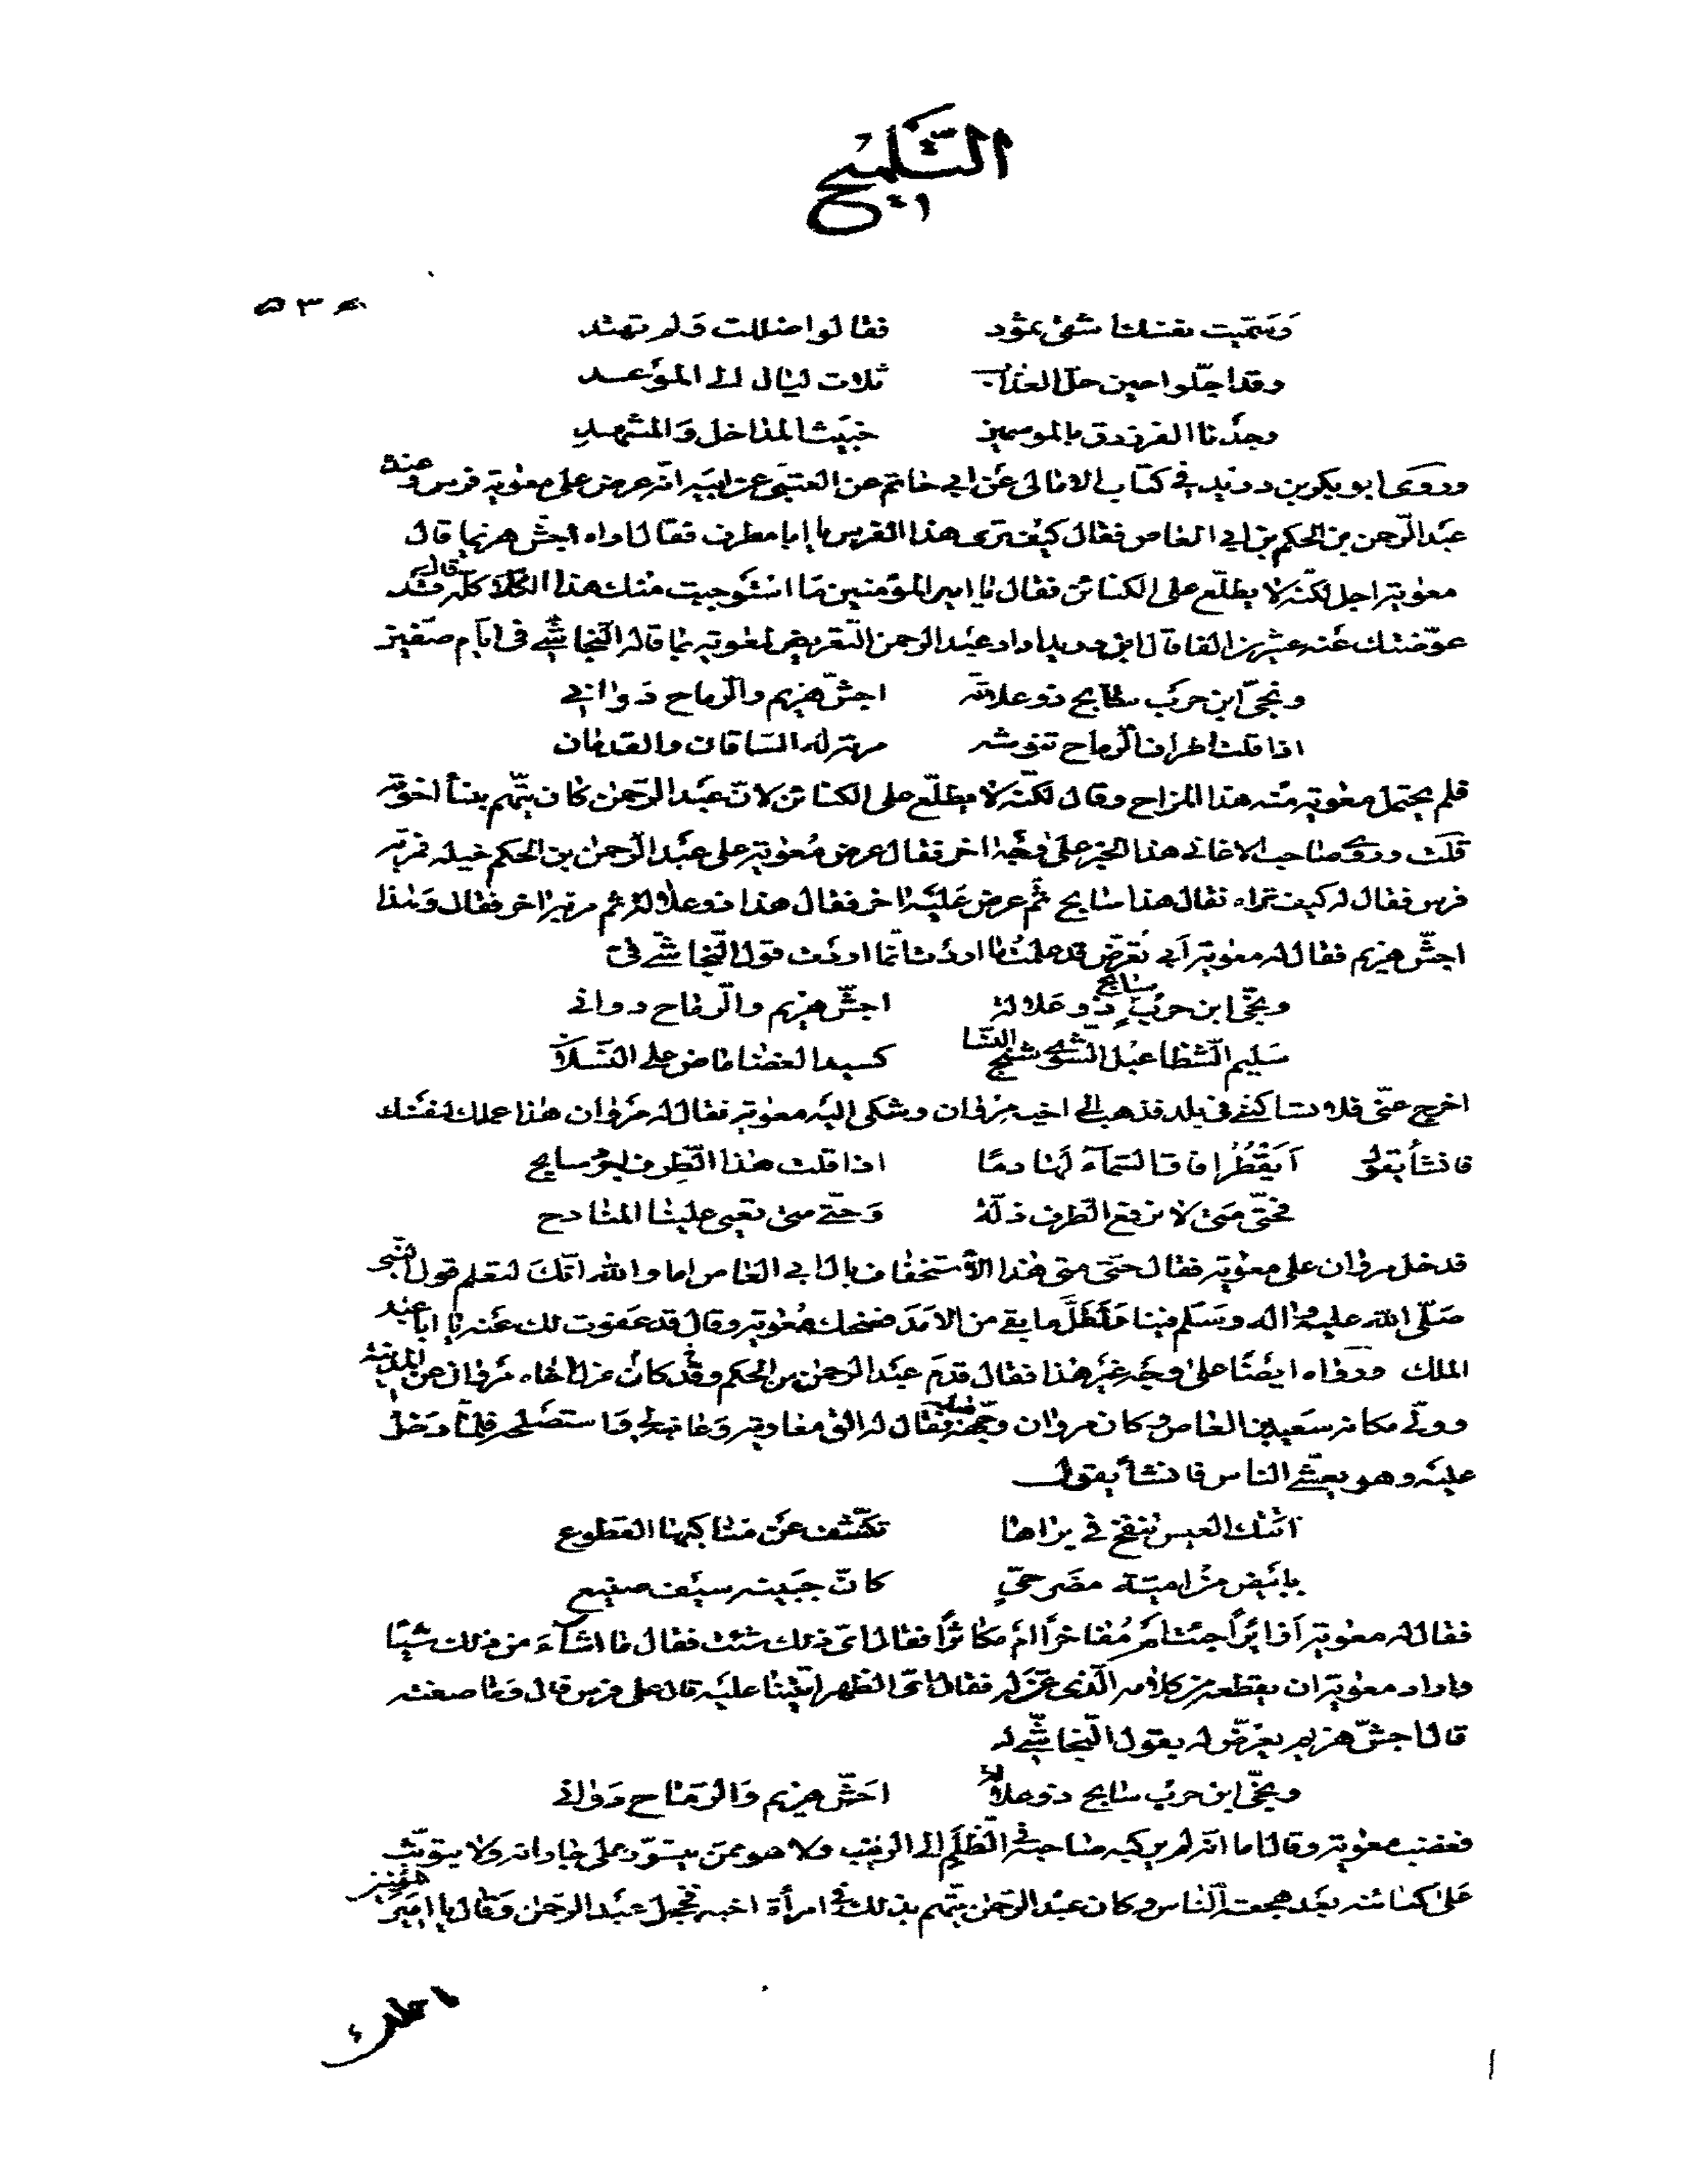 التلميح
وسميت نفسك اشقى ثمود فقالوا ضللت ولم تهتد
وقد اجلوا حين حل العذاب ثلاث ليال الى الموعد
وجدنا الفرزدق بالموسمين خبيث المداخل والمشهد
وروى ابو بكر بن دريد في كتاب الامالي عن ابي حاتم عن العتبي عن ابيه انه عرض على معوية فرس وعنده
عبد الرحمن بن الحكم بن ابي العاص فقال كيف ترى هذا الفرس يا ابا مطرف فقال اراه اجش هزيما قال
معوية اجل لكنه لا يطلع على الكنائن فقال يا امير المؤمنين ما استوجبت منك هذا الكلام كله قال قد
عوضتك عنه عشرين الفا قال ابن دريد اراد عبد الرحمن التعريض لمعوية بما قاله النجاشي في ايام صفين
ونجى ابن حرب سابح ذو علالة اجش هزيم والرماح دواني
اذا قلت اطراف الرماح تنوشه مرته له الساقان والقدمان
فلم يحتمل معوية منه هذا المزاح وقال لكنه لا يطلع على الكنائن لان عبد الرحمن كان يتهم بنساء اخوته
قلت وروى صاحب الاغاني هذا الخبر على وجه اخر فقال عرض معوية على عبد الرحمن بن الحكم خيله فمر به
فرس فقال له كيف تراه فقال هذا سابح ثم عرض عليه اخر فقال هذا ذو علالة ثم مر به اخر فقال وهذا
اجش هزيم فقال له معوية ابي تعرض قد علمت ما اردت انما اردت قول النجاشي في
ونجى ابن حرب سابح ذو علالة اجش هزيم والرماح دواني
سليم الشظا عبل الشوى شنج النسا كسيد الغضا ماض على النسلان
اخرج عني فلا تساكني في بلد فذهب الى اخيه مروان وشكى اليه معوية فقال له مروان هذا عملك لنفسك
فانشأ يقول اتقطر افاق السماء لها دما اذا قلت هذا الطرف اجرد سابح
فحتى متى لا نرفع الطرف ذلة وحتى متى تعيى علينا المنادح
فدخل مروان على معوية فقال حتى متى هذا الاستخفاف بال ابي العاص اما والله انك لتعلم قول النبي
صلى الله عليه واله وسلم فينا ولقل ما بقي من الامد فضحك معوية وقال قد عفوت لك عنه يا ابا عبد
الملك ورواه ايضا على وجه غير هذا فقال قدم عبد الرحمن بن الحكم وقد كان عزل اخاه مروان عن المدينة
وولى مكانه سعيد بن العاص وكان مروان وجهه فقال له الق معاوية وعاتبه لي واستصلحه فلما دخل
عليه وهو يعشي الناس فانشأ يقول
اتتك العيس تنفخ في براها تكشف عن مناكبها القطوع
بابيض من امية مضرحي كان جبينه سيف صنيع
فقال له معوية ازائرا جئت ام مفاخرا ام مكاثرا فقال اي ذلك شئت فقال ما اشاء من ذلك شيئا
واراد معوية ان يقطعه من كلامه الذي عن له فقال اي الظهر اتيتنا عليه قال على فرس قال وما صفته
قال اجش هزيم يعرض له بقول النجاشي له
ونجى ابن حرب سابح ذو علالة اجش هزيم والرماح دواني
فغضب معوية وقال اما انه لم يركبه صاحبه في الظلم الى الريب ولا هو ممن يتسور على جاراته ولا يتوثب
على كنائنه بعد هجعة الناس وكان عبد الرحمن يتهم بذلك في امرأة اخيه فخجل عبد الرحمن وقال يا امير المؤمنين